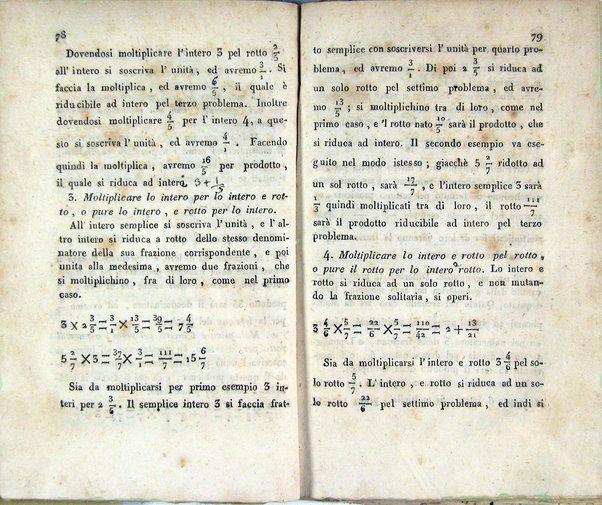 78
Dovendosi moltiplicare l'intero 3 pel rotto 2/5
all' intero si soscriva l' unità, ed avremo 3/1. Si
faccia la moltiplica, ed avremo 6/5, il quale è
riducibile ad intero pel terzo problema. Inoltre
dovendosi moltiplicare 4/5 per l' intero 4, a que-
sto si soscriva l' unità, ed avremo 4/1. Facendo
quindi la moltiplica, avremo 16/5 per prodotto,
il quale si riduca ad intero 3+1/5
3. Moltiplicare lo intero per lo intero e rot-
to, o pure lo intero, e rotto per lo intero.
All' intero semplice si soscriva l' unità, e l' al-
tro intero si riduca a rotto dello stesso denomi-
natore della sua frazione corrispondente, e poi
unita alla medesima, avremo due frazioni, che
si moltiplichino, fra di loro, come nel primo
caso.
3 × 2 3/5 = 3/1 × 13/5 = 39/5 = 7 4/5
5 2/7 × 3 = 37/7 × 3/1 = 111/7 = 15 6/7
Sia da moltiplicarsi per primo esempio 3 in-
teri per 2 3/5. Il semplice intero 3 si faccia frat-
79
to semplice con soscriversi l' unità per quarto pro-
blema, ed avremo 3/1. Di poi 2 3/5 si riduca ad
un solo rotto pel settimo problema, ed avre-
mo 13/5; si moltiplichino tra di loro, come nel
primo caso, e 'l rotto nato sarà il prodotto, che
si riduca ad intero. Il secondo esempio va ese-
guito nel modo istesso; giacchè 5 2/7 ridotto ad
un sol rotto, sarà 17/7, e l'intero semplice 3 sarà
3/1 quindi moltiplicati tra di loro, il rotto 111/7
sarà il prodotto riducibile ad intero pel terzo
problema.
4. Moltiplicare lo intero e rotto pel rotto,
o pure il rotto per lo intero rotto. Lo intero e
rotto si riduca ad un solo rotto, e non mutan-
do la frazione solitaria, si operi.
3 4/6 × 5/7 = 22/6 × 5/7 = 110/42 = 2 + 13/21
Sia da moltiplicarsi l' intero e rotto 3 4/6 pel so-
lo rotto 5/7. L' intero, e rotto si riduca ad un so-
lo rotto 22/6 pel settimo problema, ed indi si